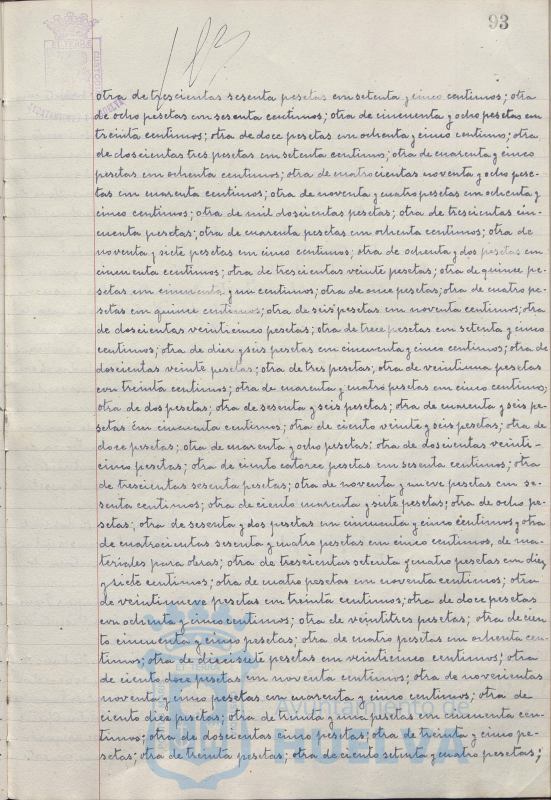 93
otra de trescientas sesenta pesetas con setenta y cinco centimos; otra
de ocho pesetas con sesenta centimos; otra de cincuenta y ocho pesetas con
treinta centimos; otra de doce pesetas con ochenta y cinco centimos; otra
de doscientas tres pesetas con setenta centimos; otra de cuarenta y cinco
pesetas con ochenta centimos; otra de cuatrocientas noventa y ocho pese-
tas con cuarenta centimos; otra de noventa y cuatro pesetas con ochenta y
cinco centimos; otra de mil doscientas pesetas; otra de trescientas cin-
cuenta pesetas; otra de cuarenta pesetas con ochenta centimos; otra de
noventa y siete pesetas con cinco centimos; otra de ochenta y dos pesetas con
cincuenta centimos; otra de trescientas veinte pesetas; otra de quince pe-
setas con cincuenta y un centimos; otra de once pesetas; otra de cuatro pe-
setas con quince centimos; otra de seis pesetas con noventa centimos; otra
de doscientas veinticinco pesetas; otra de trece pesetas con setenta y cinco
centimos; otra de diez y seis pesetas con cincuenta y cinco centimos; otra de
doscientas veinte pesetas; otra de tres pesetas; otra de veintiuna pesetas
con treinta centimos; otra de cuarenta y cuatro pesetas con cinco centimos;
otra de dos pesetas; otra de sesenta y seis pesetas; otra de cuarenta y seis pe-
setas con cincuenta centimos; otra de ciento veinte y seis pesetas; otra de
doce pesetas; otra de cuarenta y ocho pesetas; otra de doscientas veinti-
cinco pesetas; otra de ciento catorce pesetas con sesenta centimos; otra
de trescientas sesenta pesetas; otra de noventa y nueve pesetas con se-
senta centimos; otra de ciento cuarenta y siete pesetas; otra de ocho pe-
setas; otra de sesenta y dos pesetas con cincuenta y cinco centimos y otra
de cuatrocientas sesenta y cuatro pesetas con cinco centimos, de ma-
teriales para obras; otra de trescientas setenta y cuatro pesetas con diez
y siete centimos; otra de cuatro pesetas con noventa centimos; otra
de veintinueve pesetas con treinta centimos; otra de doce pesetas
con ochenta y cinco centimos; otra de veintitres pesetas; otra de cien-
to cincuenta y cinco pesetas; otra de cuatro pesetas con ochenta cen-
timos; otra de diecisiete pesetas con veinticinco centimos; otra
de ciento doce pesetas con noventa centimos; otra de novecientas
noventa y cinco pesetas con cuarenta y cinco centimos; otra de
ciento diez pesetas; otra de treinta y una pesetas con cincuenta cen-
timos; otra de doscientas cinco pesetas; otra de treinta y cinco pe-
setas; otra de treinta pesetas; otra de ciento setenta y cuatro pesetas;
Ayuntamiento de
HUELVA